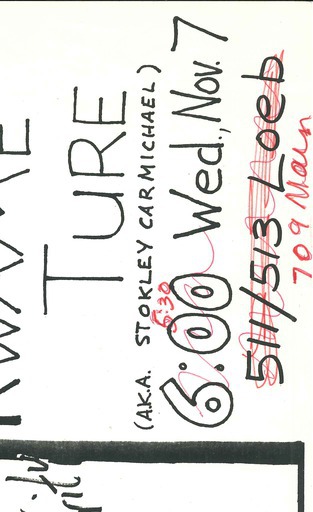 KWAME
TURE
(A.K.A. STOKLEY CARMICHAEL)
5:30
6:00 Wed., Nov. 7
511/513 Loeb
709 Main